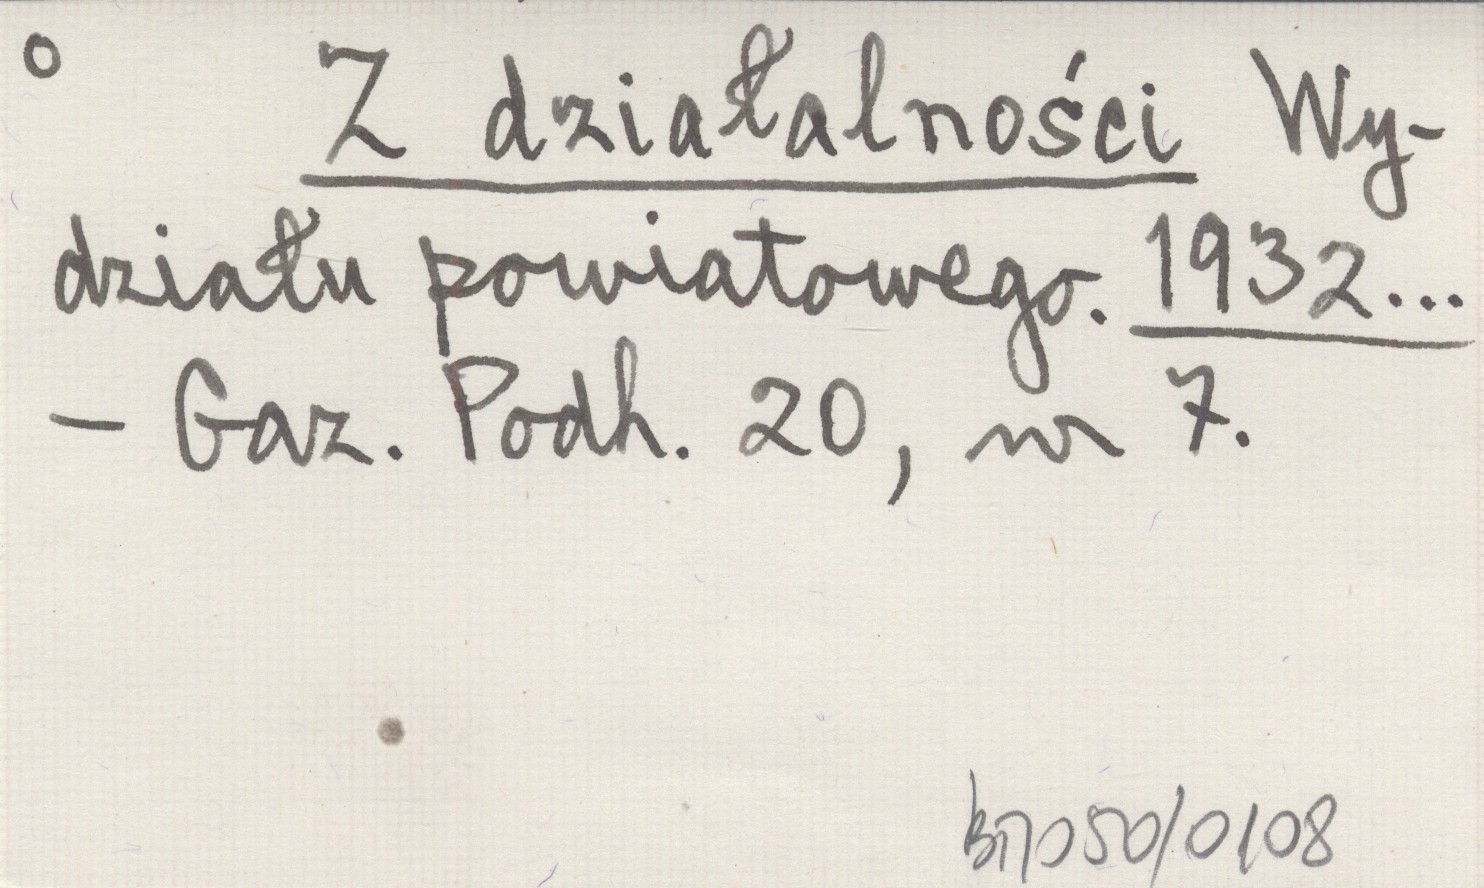 o Z działalności Wy-
działu powiatowego. 1932...
– Gaz. Podh. 20, nr 7.